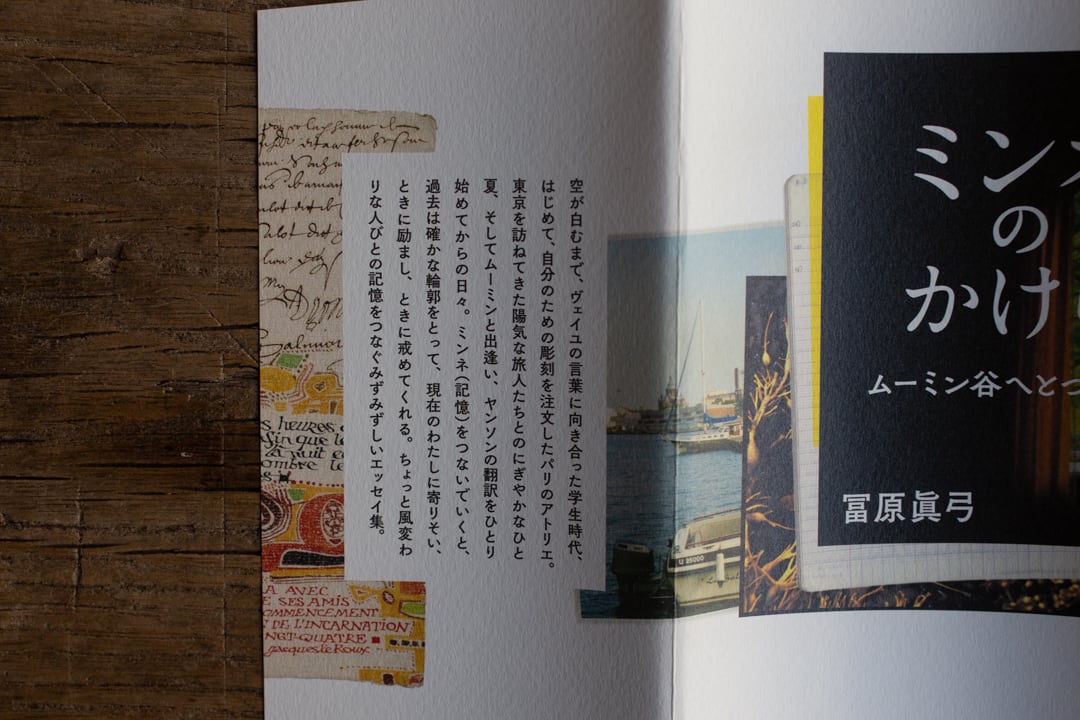 空が白むまで、ヴェイユの言葉に向き合った学生時代、
はじめて、自分のための彫刻を注文したパリのアトリエ。
東京を訪ねてきた陽気な旅人たちとのにぎやかなひと
夏、そしてムーミンと出逢い、ヤンソンの翻訳をひとり
始めてからの日々。ミンネ(記憶)をつないでいくと、
過去は確かな輪郭をとって、現在のわたしに寄りそい、
ときに励まし、ときに戒めてくれる。ちょっと風変わ
りな人びとの記憶をつなぐみずみずしいエッセイ集。
ミンネ
の
かけ
ムーミン谷へとつ
冨原眞弓
U 25000
s heures
sin que le
ombre
A AVEC
E SES AMIS
OMMENCEMENT
DE L'INCARNATION
NGT-QUATRE
Jacques le Roux